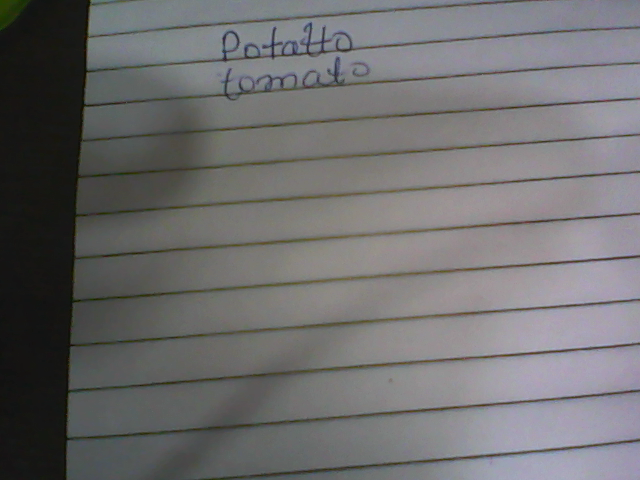 Potatto
tomato